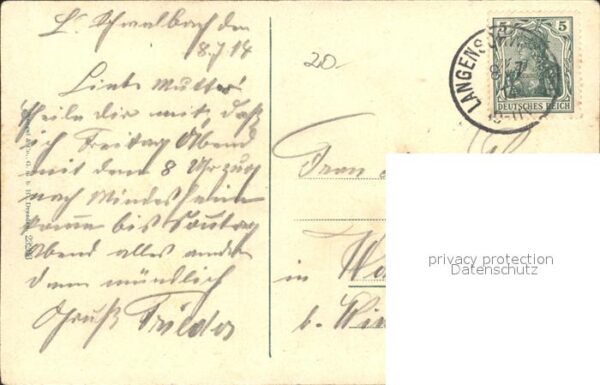 L. Schwalbach den
8.7.14
20.-
Liebe Mutter
theile dir mit, daß
ich Freitag Abend
mit dem 8 Uhrzug
nach
komme bis Sontag
Abend alles andre
dann mündlich
Gruß Frieda
Frau
in
b.
5 5
DEUTSCHES REICH
LANGENS
privacy protection
Datenschutz